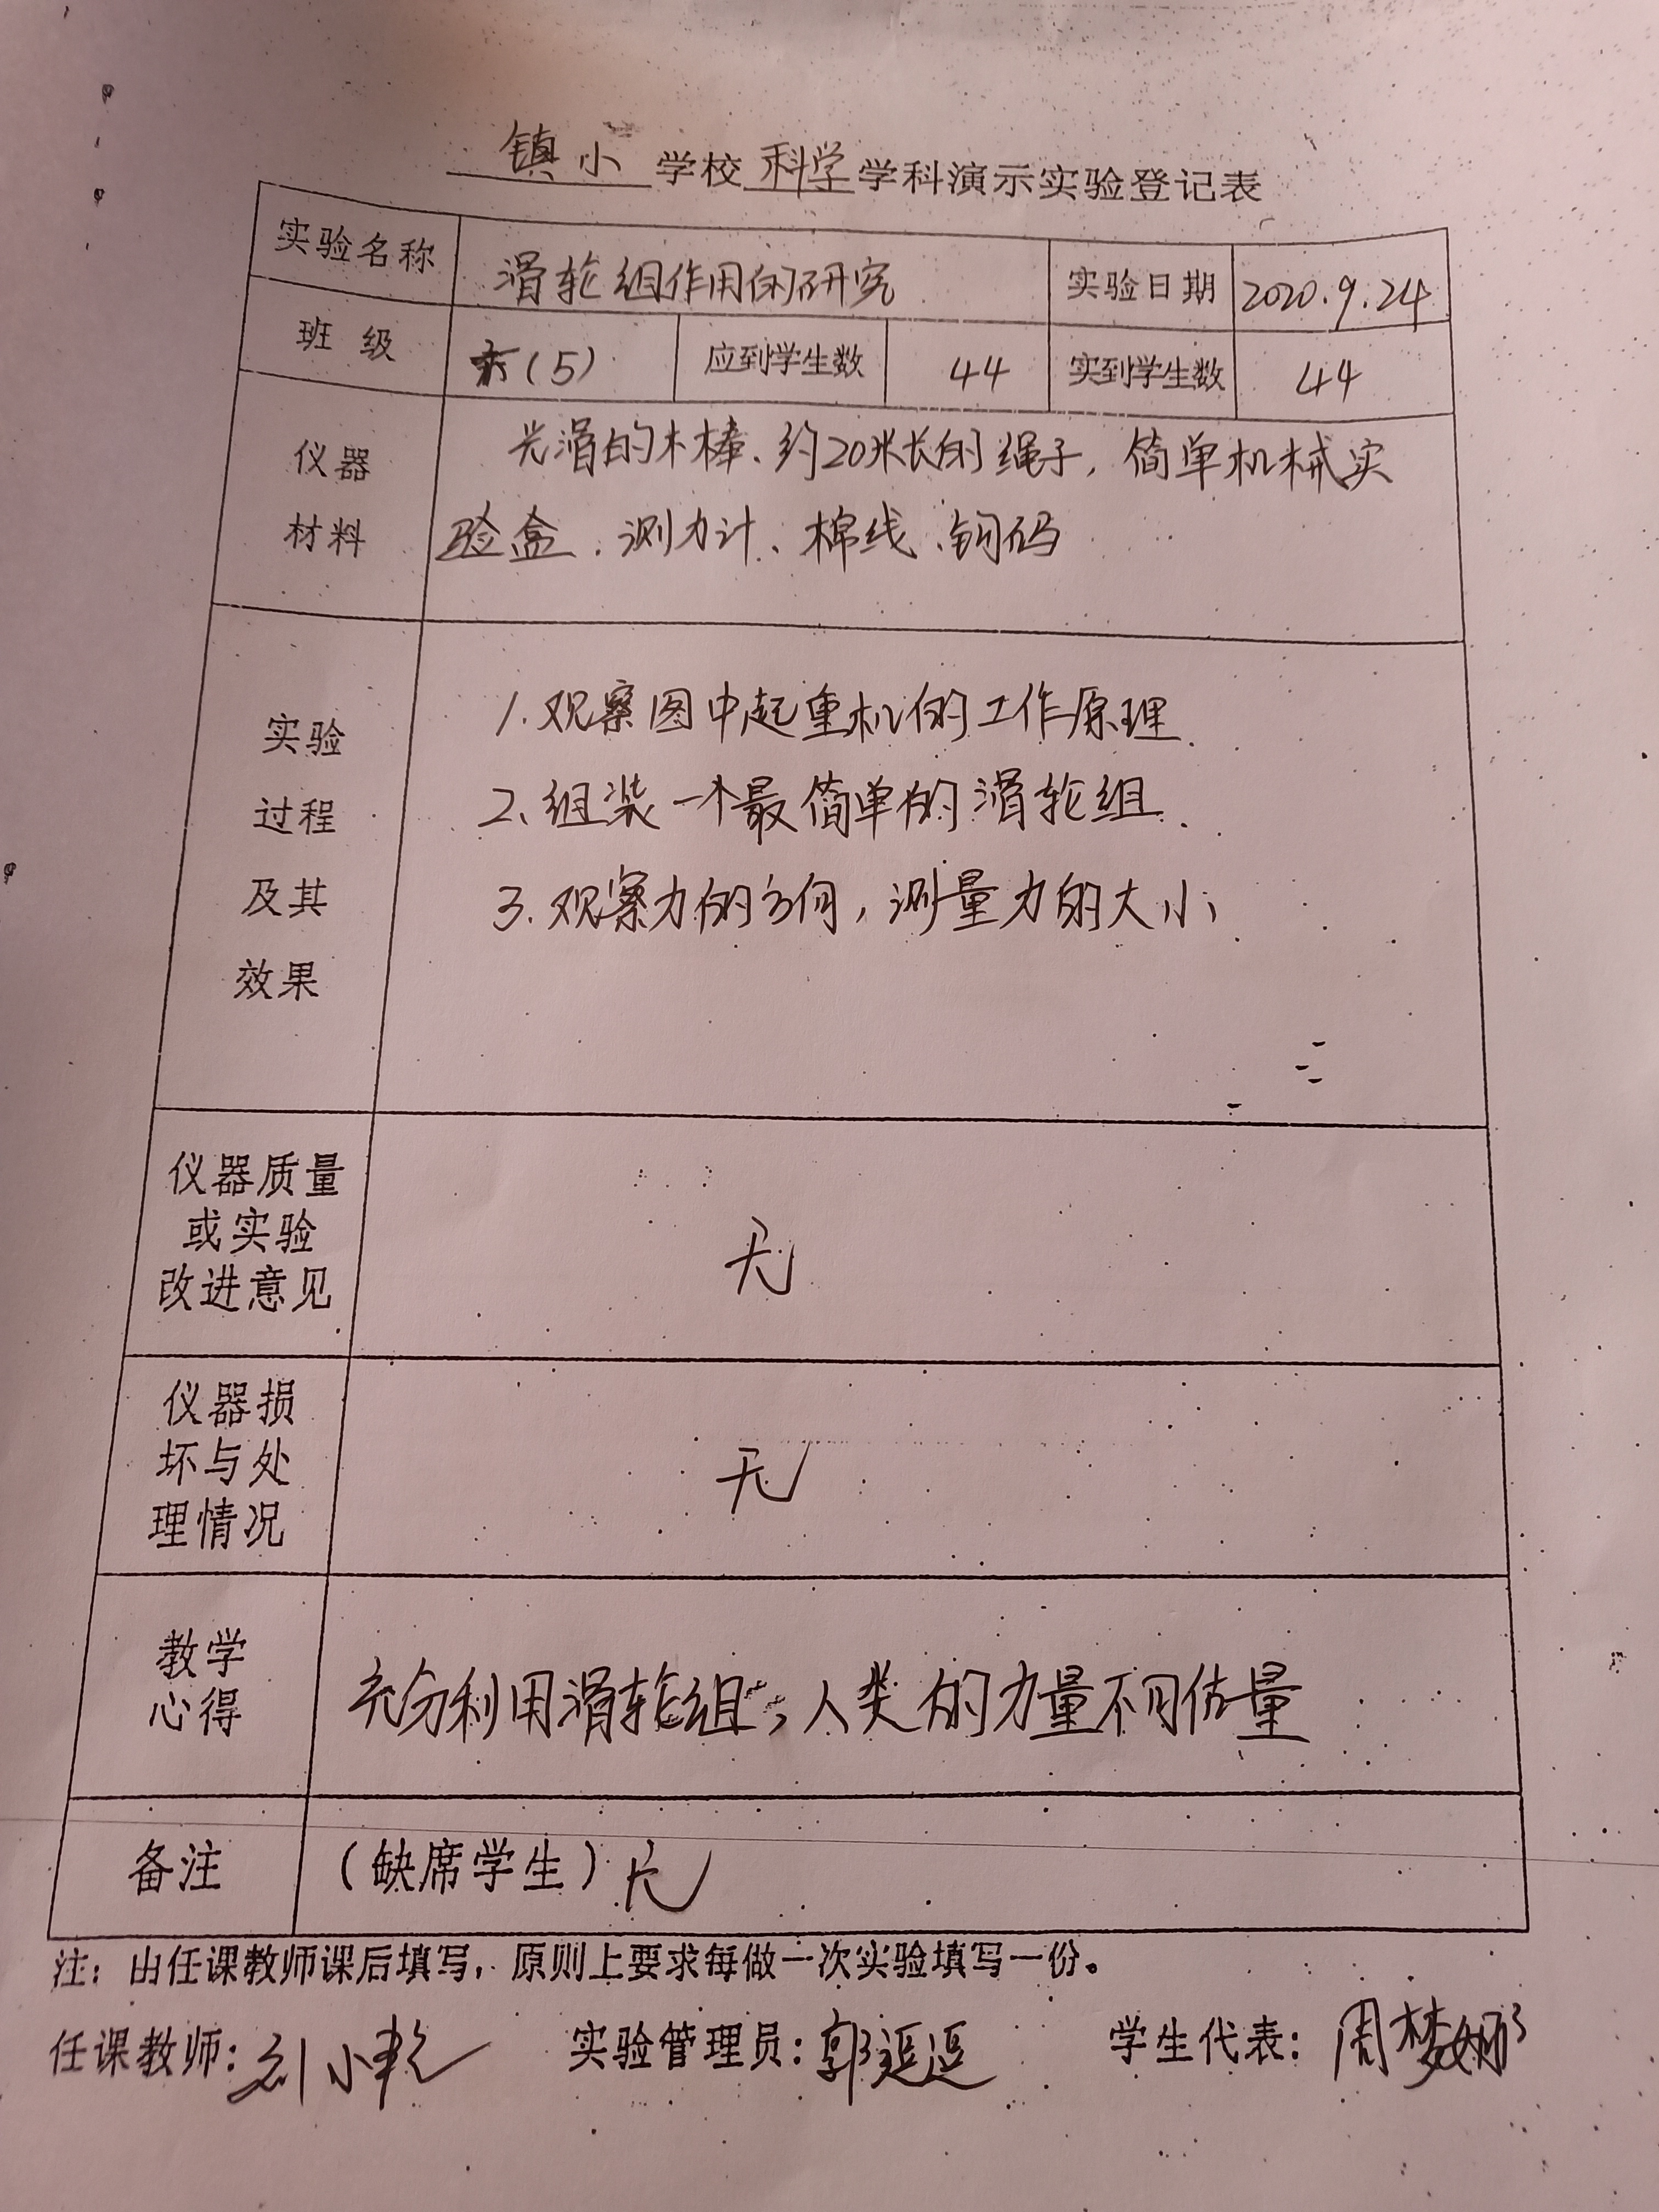 镇小 学校 科学 学科演示实验登记表
实验名称 滑轮组作用的研究 实验日期 2020.9.24
班级 六(5) 应到学生数 44 实到学生数 44
仪器
材料
光滑的木棒、约20米长的绳子,简单机械实
验盒、测力计、棉线、钩码
实验
过程
及其
效果
1.观察图中起重机的工作原理.
2、组装一个最简单的滑轮组.
3.观察力的方向,测量力的大小
仪器质量
或实验
改进意见
无
仪器损
坏与处
理情况
无
教学
心得
充分利用滑轮组,人类的力量不可估量
备注 (缺席学生)无
注:由任课教师课后填写,原则上要求每做一次实验填写一份。
任课教师:刘小艳 实验管理员:郭延延 学生代表:周梦娜